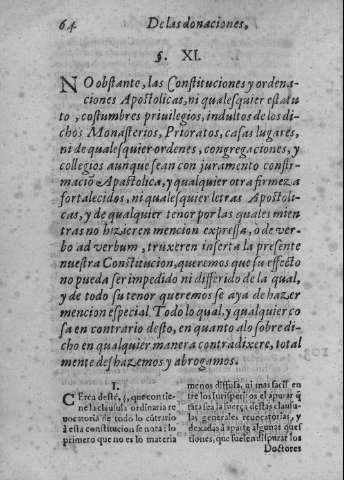 64 De las donaciones,
§. XI.
NO obstante, las Constituciones y ordena-
ciones Apostolicas, ni qualesquier estatu
to, costumbres privilegios, indultos de los di-
chos Monasterios, Prioratos, casas lugares,
ni de qualesquier ordenes, congregaciones, y
collegios aunque sean con juramento confir-
mació Apastolica, y qualquier otra firmeza
fortalecidos, ni qualesquier letras Apostoli-
cas, y de qualquier tenor por las quales mien
tras no hizieren mencion expressa, ò de ver-
bo ad verbum, truxeren inserta la presente
nuestra Constitucion, queremos que su effecto
no pueda ser impedido ni differido de la qual,
y de todo su tenor queremos se aya de hazer
mencion especial Todo lo qual, y qualquier co
sa en contrario desto, en quanto alo sobre di-
cho en qualquier manera contradixere, total
mente deshazemos y abrogamos.
I.
CErca deste, §, que contie-
ne la clausula ordinaria re
vocatoria de todo lo cõtrario
à esta constitucion se nota: lo
primero que no es lo materia
menos difusa, ni mas facil en
tre los Iurisperitos el apurar q̃
tãta sea la fuerça destas clausu-
las generales revocatorias, y
dexadas à aparte algunas ques
tiones, que suelen disputar los
Doctores